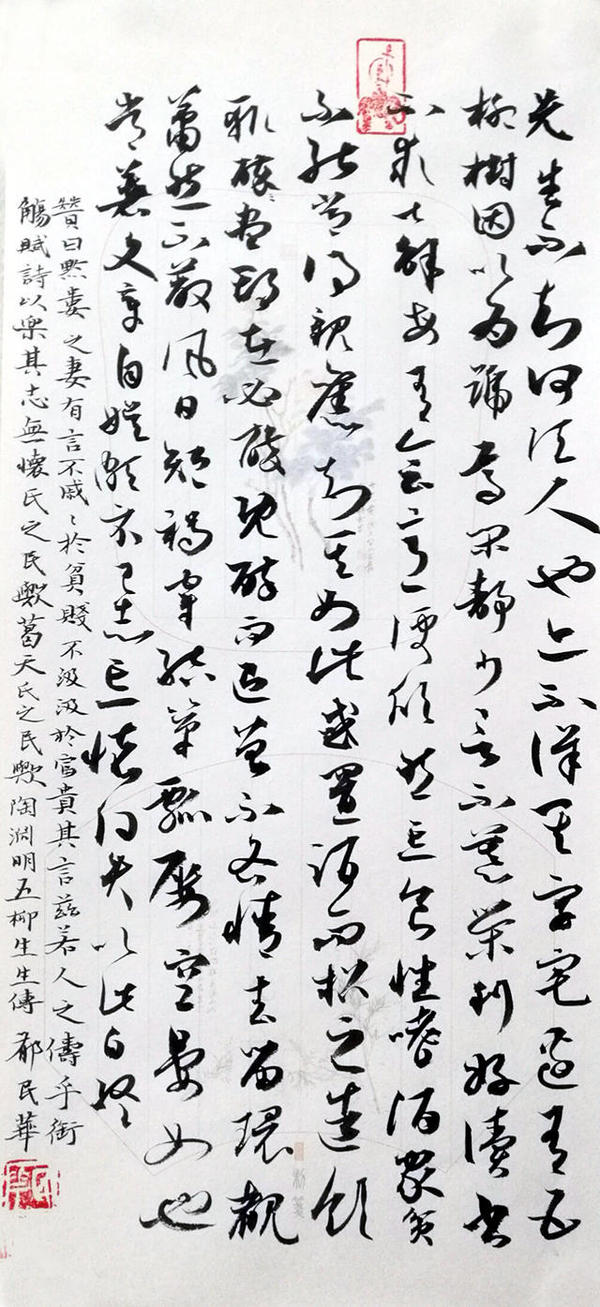 先生不知何許人也亦不詳其字宅邊有五
柳樹因以為號焉閑靜少言不慕榮利好讀書
不求甚解每有會意便欣然忘食性嗜酒家貧
不能常得親舊知其如此或置酒而招之造飲
輒盡期在必醉既醉而退曾不吝情去留環
蕭然不蔽風日短褐穿結簞瓢屢空晏如也
常著文章自娛頗示己志忘懷得失以此自終
贊曰黔婁之妻有言不戚〻於貧賤不汲汲於富貴其言茲若人之儔乎銜
觴賦詩以樂其志無懷氏之民歟葛天氏之民歟陶淵明五柳生生傳 民華